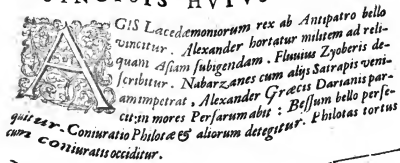 SYNOPSIS HVIVS
AGIS Lacedæmoniorum rex ab Antipatro bello
vincitur. Alexander hortatur militem ad reli-
quam Asiam subigendam. Fluuius Zyoberis de-
scribitur. Nabarzanes cum alijs Satrapis veni-
am impetrat, Alexander Græcis Darianis par-
cit; in mores Persarum abit: Bessum bello perse-
quitur. Coniuratio Philotæ & aliorum detegitur. Philotas tortus
cum coniuratis occiditur.